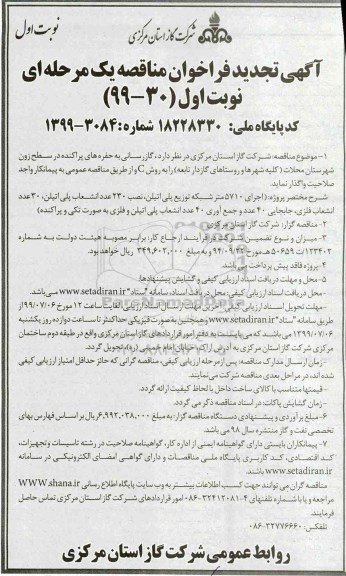 نوبت اول
شرکت گاز استان مرکزی
آگهی تجدید فراخوان مناقصه یک مرحله ای
نوبت اول (۳۰-۹۹)
کدپایگاه ملی: ۱۸۲۲۸۳۳۰ شماره: ۳۰۸۴-۱۳۹۹
۱-موضوع مناقصه: شرکت گاز استان مرکزی در نظر دارد، گازرسانی به حفره های پراکنده در سطح زون
شهرستان محلات ( کلیه شهرها و روستاهای گازدار تابعه) را به روش C و از طریق مناقصه عمومی به پیمانکار واجد
صلاحیت واگذار نماید.
شرح مختصر پروژه: (اجرای ۵۷۱۰ متر شبکه توزیع پلی اتیلن، نصب ۲۳۰ عدد انشعاب پلی اتیلن، ۳۰ عدد
انشعاب فلزی، جابجایی ۴۰ عدد و جمع آوری ۴۰ عدد انشعاب پلی اتیلن و فلزی به صورت تکی و پراکنده)
۲- مناقصه گزار: شرکت گاز استان مرکزی
۳- میزان و نوع تضمین شرکت در فرآیند ارجاع کار: برابر مصوبه هیئت دولت به شماره
۱۲۳۴۰۲/ت ۵۰۶۵۹ هـ مورخ ۹۴/۰۹/۲۲ و به مبلغ ۳۴۹,۶۰۲,۰۰۰ ریال خواهد بود.
۴- پروژه فاقد پیش پرداخت می باشد.
۵- محل و مهلت دریافت اسناد ارزیابی کیفی و گشایش پیشنهادها:
- محل دریافت اسناد ارزیابی کیفی: محل دریافت اسناد، سامانه "ستاد" www.setadiran.ir می باشد.
-مهلت تحویل اسناد ارزیابی کیفی: آخرین مهلت ارسال اسناد ارزیابی الغایت ساعت ۱۲ مورخ ۹۹/۰۷/۰۶ از
طریق سامانه "ستاد" www.setadiran.ir و همچنین به صورت فیزیکی حداکثر تا ساعت دوازده روز یکشنبه
۱۳۹۹/۰۷/۰۶ می باشد که می بایست به دفتر امور قراردادهای گاز استان مرکزی واقع در طبقه دوم ساختمان
مرکزی شرکت گاز استان مرکزی به آدرس اراک، خیابان امام خمینی (ره) تحویل گردد.
-زمان ارسال مدارک مناقصه: پس از مرحله ارزیابی کیفی، مناقصه گرانی که حائز حداقل امتیاز ارزیابی کیفی
شده اند، در مراحل بعدی مناقصه شرکت می نمایند.
- قیمتها متناسب با کالای ساخت داخل با لحاظ کیفیت ارائه گردد.
-زمان گشایش پاکات: در اسناد مناقصه ذکر می گردد.
۶-مبلغ برآوردی و پیشنهادی دستگاه مناقصه گزار: به مبلغ ۶,۹۹۲,۰۳۸,۰۰۰ ریال بر اساس فهارس بهای
تخصصی نفت و گاز منتشره سال ۹۸ می باشد.
۷- پیمانکاران بایستی دارای گواهینامه ایمنی از اداره کار، گواهینامه صلاحیت در رشته تاسیسات و تجهیزات،
کد اقتصادی، کد کاربری پایگاه ملی مناقصات و دارای گواهی امضای الکترونیکی در سامانه
www.setadiran.ir باشند.
مناقصه گران می توانند جهت کسب اطلاعات بیشتر به وب سایت پایگاه اطلاع رسانی WWW.shana.ir
مراجعه و یا با شماره تلفنهای ۴-۳۲۴۱۲۰۸۱-۰۸۶ امور قراردادهای شرکت گاز استان مرکزی تماس حاصل
فرمایند.
تلفکس: ۳۲۷۷۶۶۶۰-۰۸۶
روابط عمومی شرکت گاز استان مرکزی